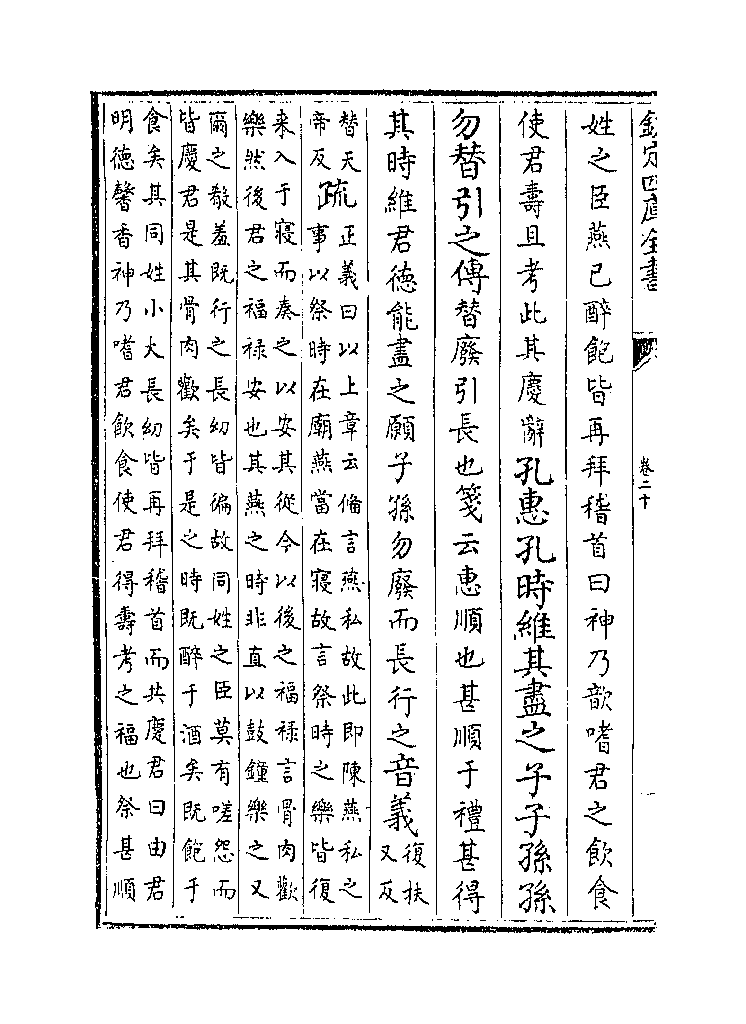 欽定四庫全書
卷二十
姓之臣燕已醉飽皆再拜稽首曰神乃歆嗜君之飲食
使君壽且考此其慶辭孔惠孔時維其盡之子子孫孫
勿替引之傳替廢引長也箋云惠順也甚順于禮甚得
其時維君德能盡之願子孫勿廢而長行之音義復扶
又反
替天
帝反疏正義曰以上章云備言燕私故此即陳燕私之
事以祭時在廟燕當在寢故言祭時之樂皆復
來入于寢而奏之以安其從今以後之福祿言骨肉歡
樂然後君之福祿安也其燕之時非直以鼓鐘樂之又
爾之殽羞既行之長幼皆徧故同姓之臣莫有嗟怨而
皆慶君是其骨肉歡矣于是之時既醉于酒矣既飽于
食矣其同姓小大長幼皆再拜稽首而共慶君曰由君
明德馨香神乃嗜君飲食使君得壽考之福也祭甚順